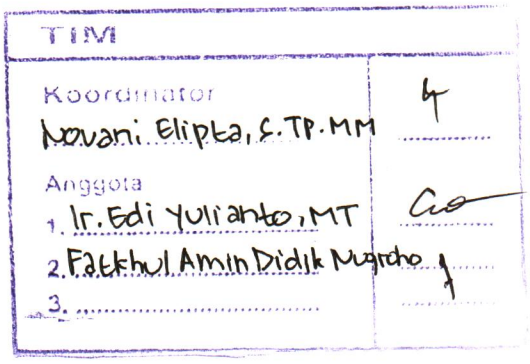 TIM
Koordinator
Novani Elipta, S.TP.MM
Anggota
1. Ir. Edi Yulianto, MT
2. Fatkhul Amin Didik Nugroho
3.